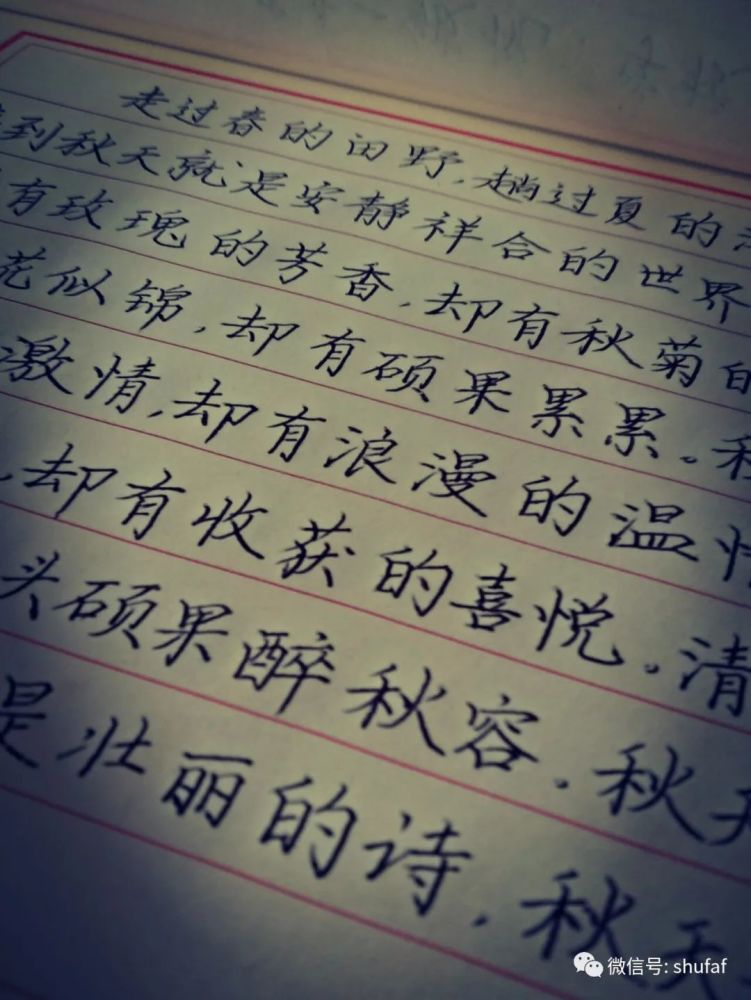 走过春的田野,趟过夏的
到秋天就是安静祥合的世界
有玫瑰的芳香,却有秋菊的
花似锦,却有硕果累累。秋
激情,却有浪漫的温情
,却有收获的喜悦。清
头硕果醉秋容.秋天
是壮丽的诗,秋天
微信号: shufaf